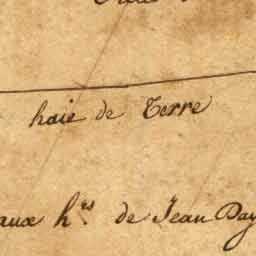 haie de Terre
aux h.rs de Jean Day